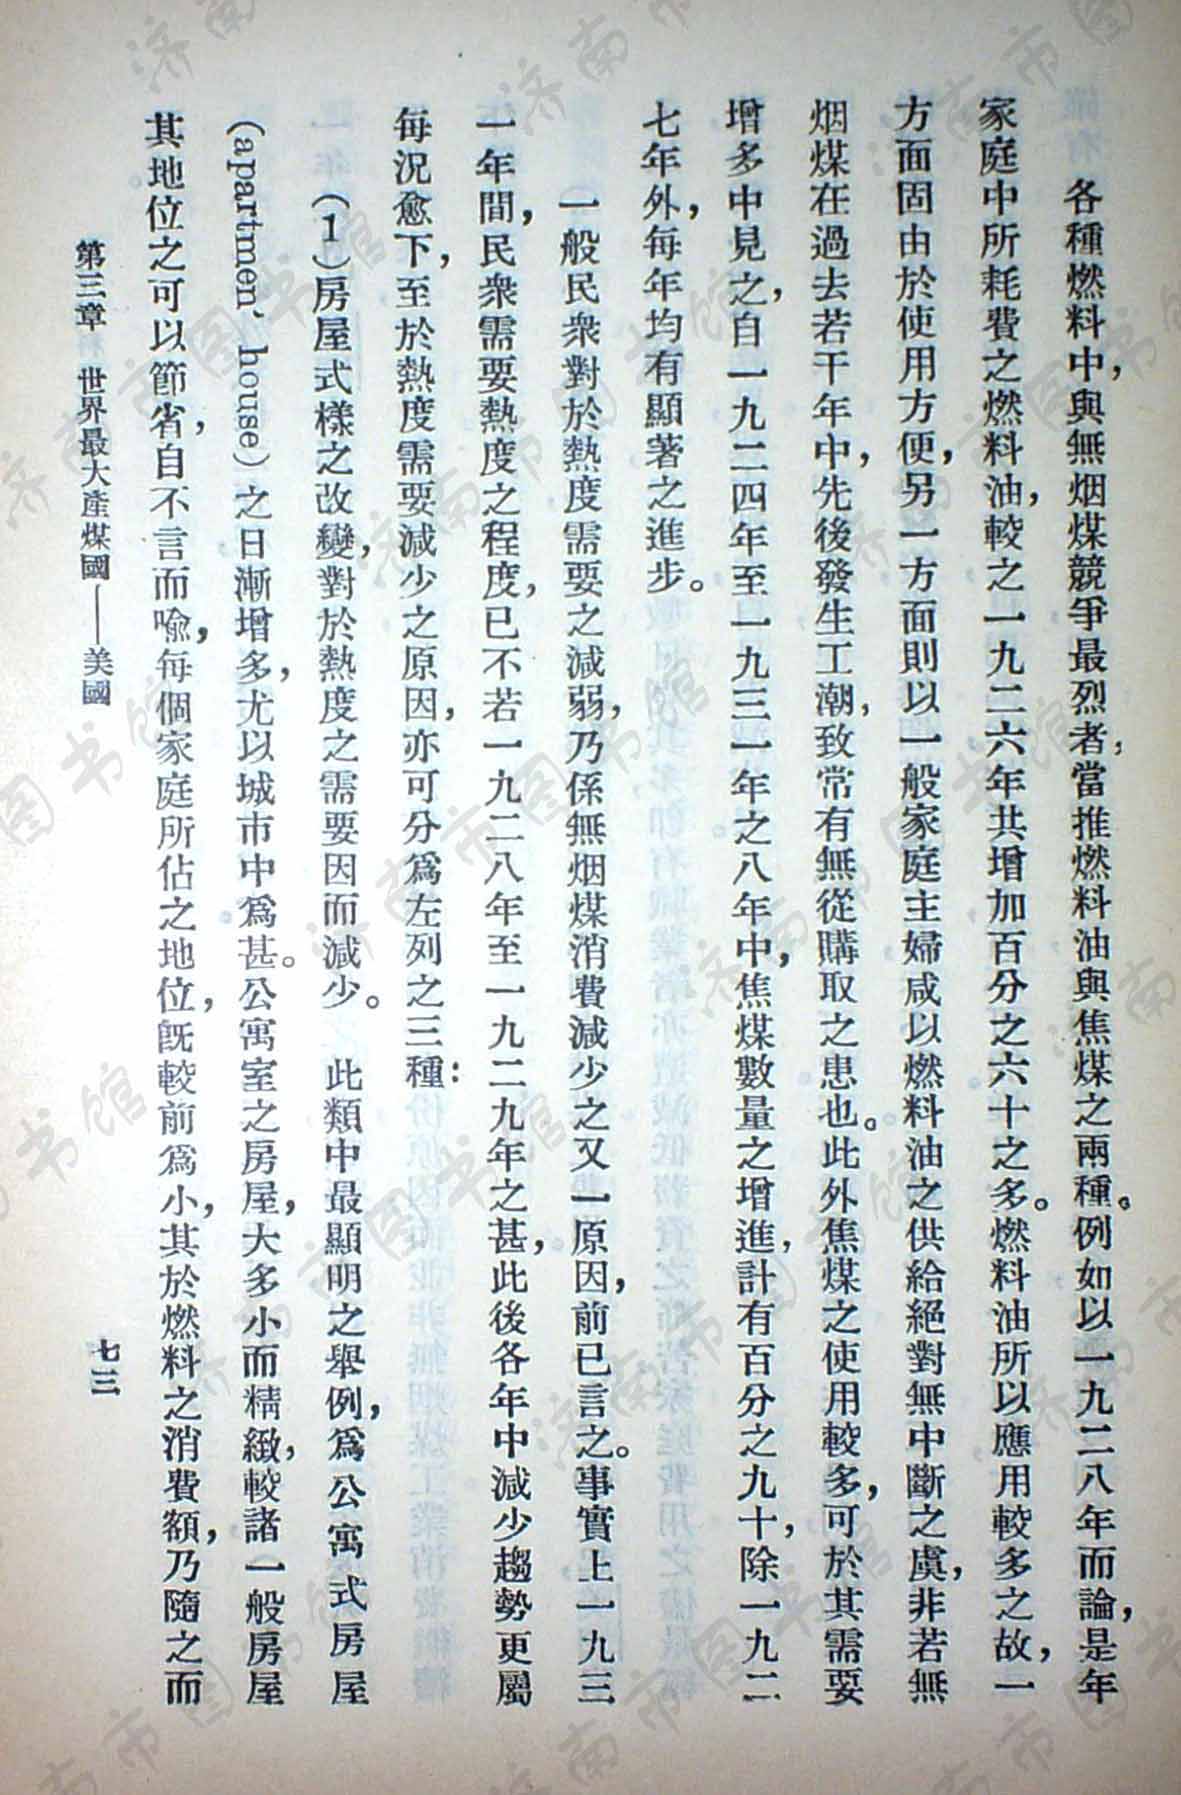 各種燃料中，與無烟煤競爭最烈者，當推燃料油與焦煤之兩種。例如以一九二八年而論，是年
家庭中所耗費之燃料油，較之一九二六年共增加百分之六十之多。燃料油所以應用較多之故，一
方面固由於使用方便，另一方面則以一般家庭主婦咸以燃料油之供給絕對無中斷之虞，非若無
烟煤在過去若干年中，先後發生工潮，致常有無從購取之患也。此外焦煤之使用較多，可於其需要
增多中見之，自一九二四年至一九三一年之八年中，焦煤數量之增進，計有百分之九十，除一九二
七年外，每年均有顯著之進步。
一般民衆對於熱度需要之減弱，乃係無烟煤消費減少之又一原因，前已言之。事實上一九三
一年間，民衆需要熱度之程度，已不若一九二八年至一九二九年之甚，此後各年中減少趨勢更屬
每況愈下，至於熱度需要減少之原因，亦可分爲左列之三種：
（1）房屋式樣之改變，對於熱度之需要因而減少。　此類中最顯明之舉例，爲公寓式房屋
（apartmen' house）之日漸增多，尤以城市中爲甚。公寓室之房屋，大多小而精緻，較諸一般房屋
其地位之可以節省，自不言而喩，每個家庭所佔之地位，旣較前爲小，其於燃料之消費額，乃隨之而
第三章　世界最大產煤國——美國
七三
济南市图书馆